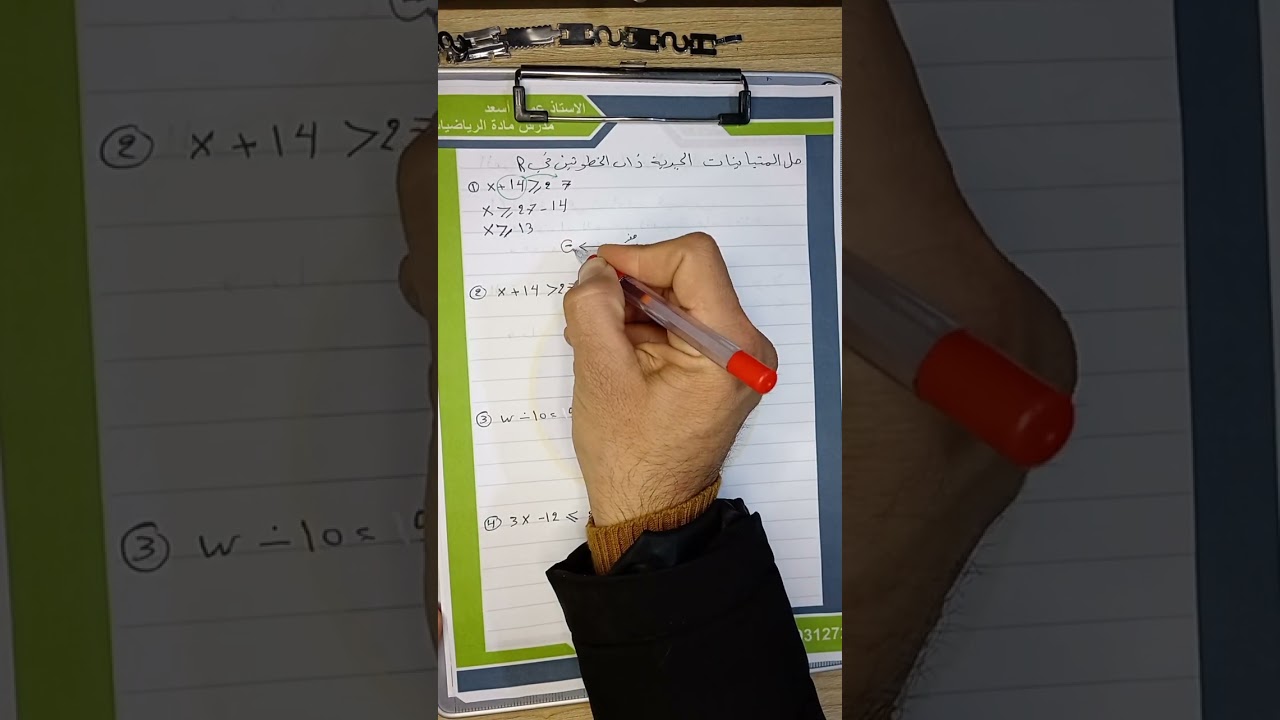 الاستاذ اسعد
مدرس مادة الرياضيات
حل المتباينات الجبرية ذات الخطوتين في R
① x + 14 ⩾ 27
x ⩾ 27 - 14
x ⩾ 13
② x + 14 > 27
③ w ÷ 10 =
④ 3x - 12 ⩽